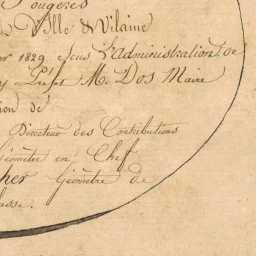 Fougères
Ville & Vilaine
1829 sous l'Administration de
Préfet M. Dos Maire
tion de
Directeur des Contributions
Géomètre en Chef
cher Géomètre de
classe.